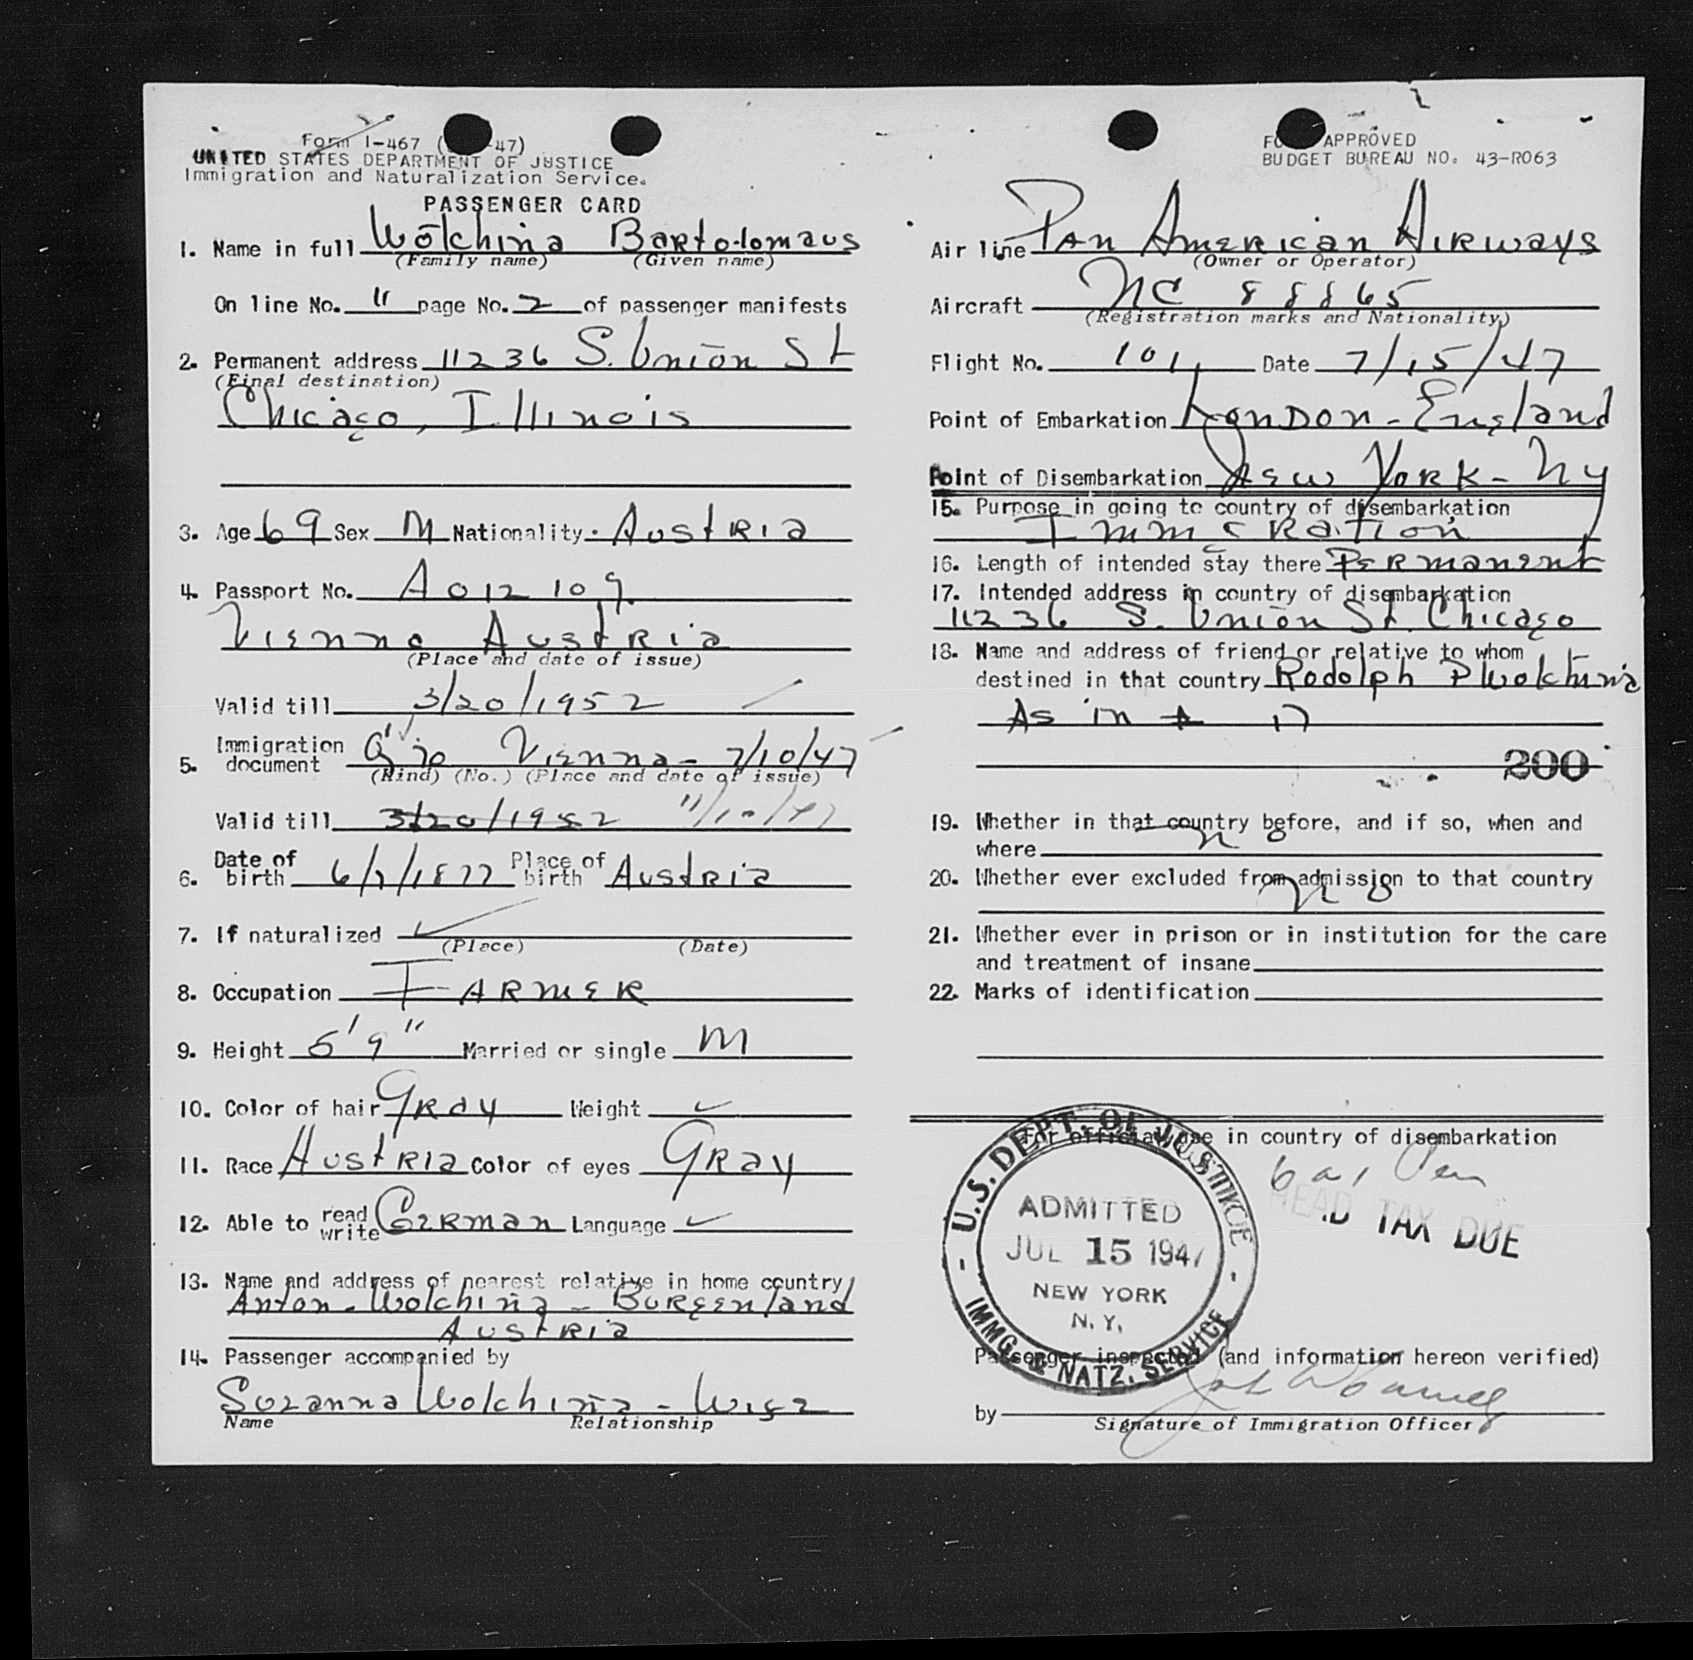 Form I-467 ( 47)
UNITED STATES DEPARTMENT OF JUSTICE
Immigration and Naturalization Service.
PASSENGER CARD
1. Name in full Wolchina Bartolomaus
(Family name) (Given name)
On line No. 11 page No. 2 of passenger manifests
2. Permanent address 11236 S. Union St
(Final destination)
Chicago, Illinois
3. Age 69 Sex M Nationality Austria
4. Passport No. A 012109
Vienna Austria
(Place and date of issue)
Valid till 3/20/1952
5. Immigration document Vienna - 7/10/47
(Kind) (No.) (Place and date of issue)
Valid till 3/20/1952 11/10/47
6. Date of birth 6/ /1877 Place of birth Austria
7. If naturalized
(Place) (Date)
8. Occupation Farmer
9. Height 5' 9" Married or single M
10. Color of hair Gray Weight
11. Race Austria Color of eyes Gray
12. Able to read write German Language
13. Name and address of nearest relative in home country
Anton - Wolchina - Burgenland
Austria
14. Passenger accompanied by
Suzanna Wolchina - Wife
Name Relationship
FORM APPROVED
BUDGET BUREAU NO. 43-R063
Air line Pan American Airways
(Owner or Operator)
Aircraft NC 88865
(Registration marks and Nationality)
Flight No. 101 Date 7/15/47
Point of Embarkation London - England
Point of Disembarkation New York - NY
15. Purpose in going to country of disembarkation
Immgration
16. Length of intended stay there Permanent
17. Intended address in country of disembarkation
11236 S. Union St. Chicago
18. Name and address of friend or relative to whom
destined in that country Rodolph Pwolchina
As in # 17
200
19. Whether in that country before, and if so, when and
where no
20. Whether ever excluded from admission to that country
no
21. Whether ever in prison or in institution for the care
and treatment of insane
22. Marks of identification
For official use in country of disembarkation
HEAD TAX DUE
U.S. DEPT. OF JUSTICE
ADMITTED
JUL 15 1947
NEW YORK
N. Y.
IMMG. & NATZ. SERVICE
Passenger inspected (and information hereon verified)
by
Signature of Immigration Officer